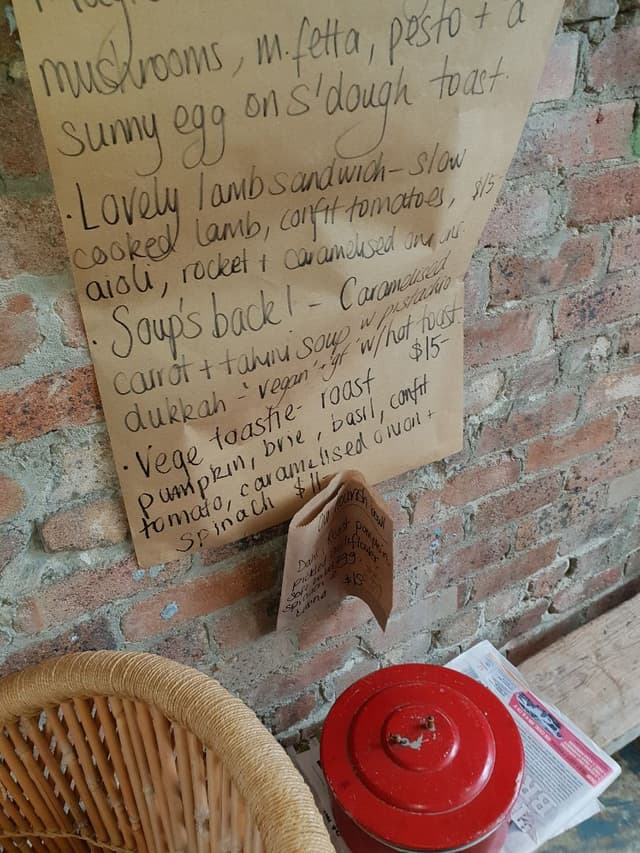 mushrooms, m.fetta, pesto + a
sunny egg on s'dough toast.
· Lovely lamb sandwich - slow
cooked lamb, confit tomatoes, $15-
aioli, rocket + caramelised
· Soup's back! - Caramelised
carrot + tahini soup w pistachio
dukkah - 'vegan' + 'gf' w/ hot toast
$15-
· Vege toastie - roast
pumpkin, brie, basil, confit
tomato, caramelised onion +
spinach $11
nourish bowl
roast pumpkin
pickled cauliflower
egg
$18